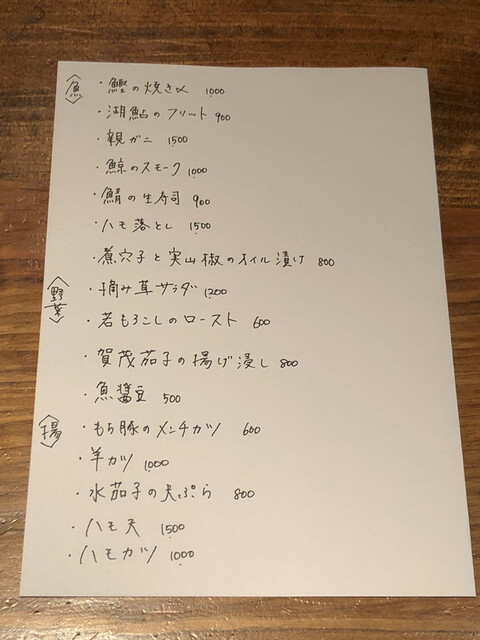 〈魚〉
・鰹の焼き〆 1000
・湖鮎のフリット 900
・親ガニ 1500
・鯨のスモーク 1000
・鯖の生寿司 900
・ハモ落とし 1500
・煮穴子と実山椒のオイル漬け 800
〈野菜〉
・摘み草サラダ 1200
・若もろこしのロースト 600
・賀茂茄子の揚げ浸し 800
・魚醤豆 500
〈揚〉
・もち豚のメンチカツ 600
・羊カツ 1000
・水茄子の天ぷら 800
・ハモ天 1500
・ハモカツ 1000